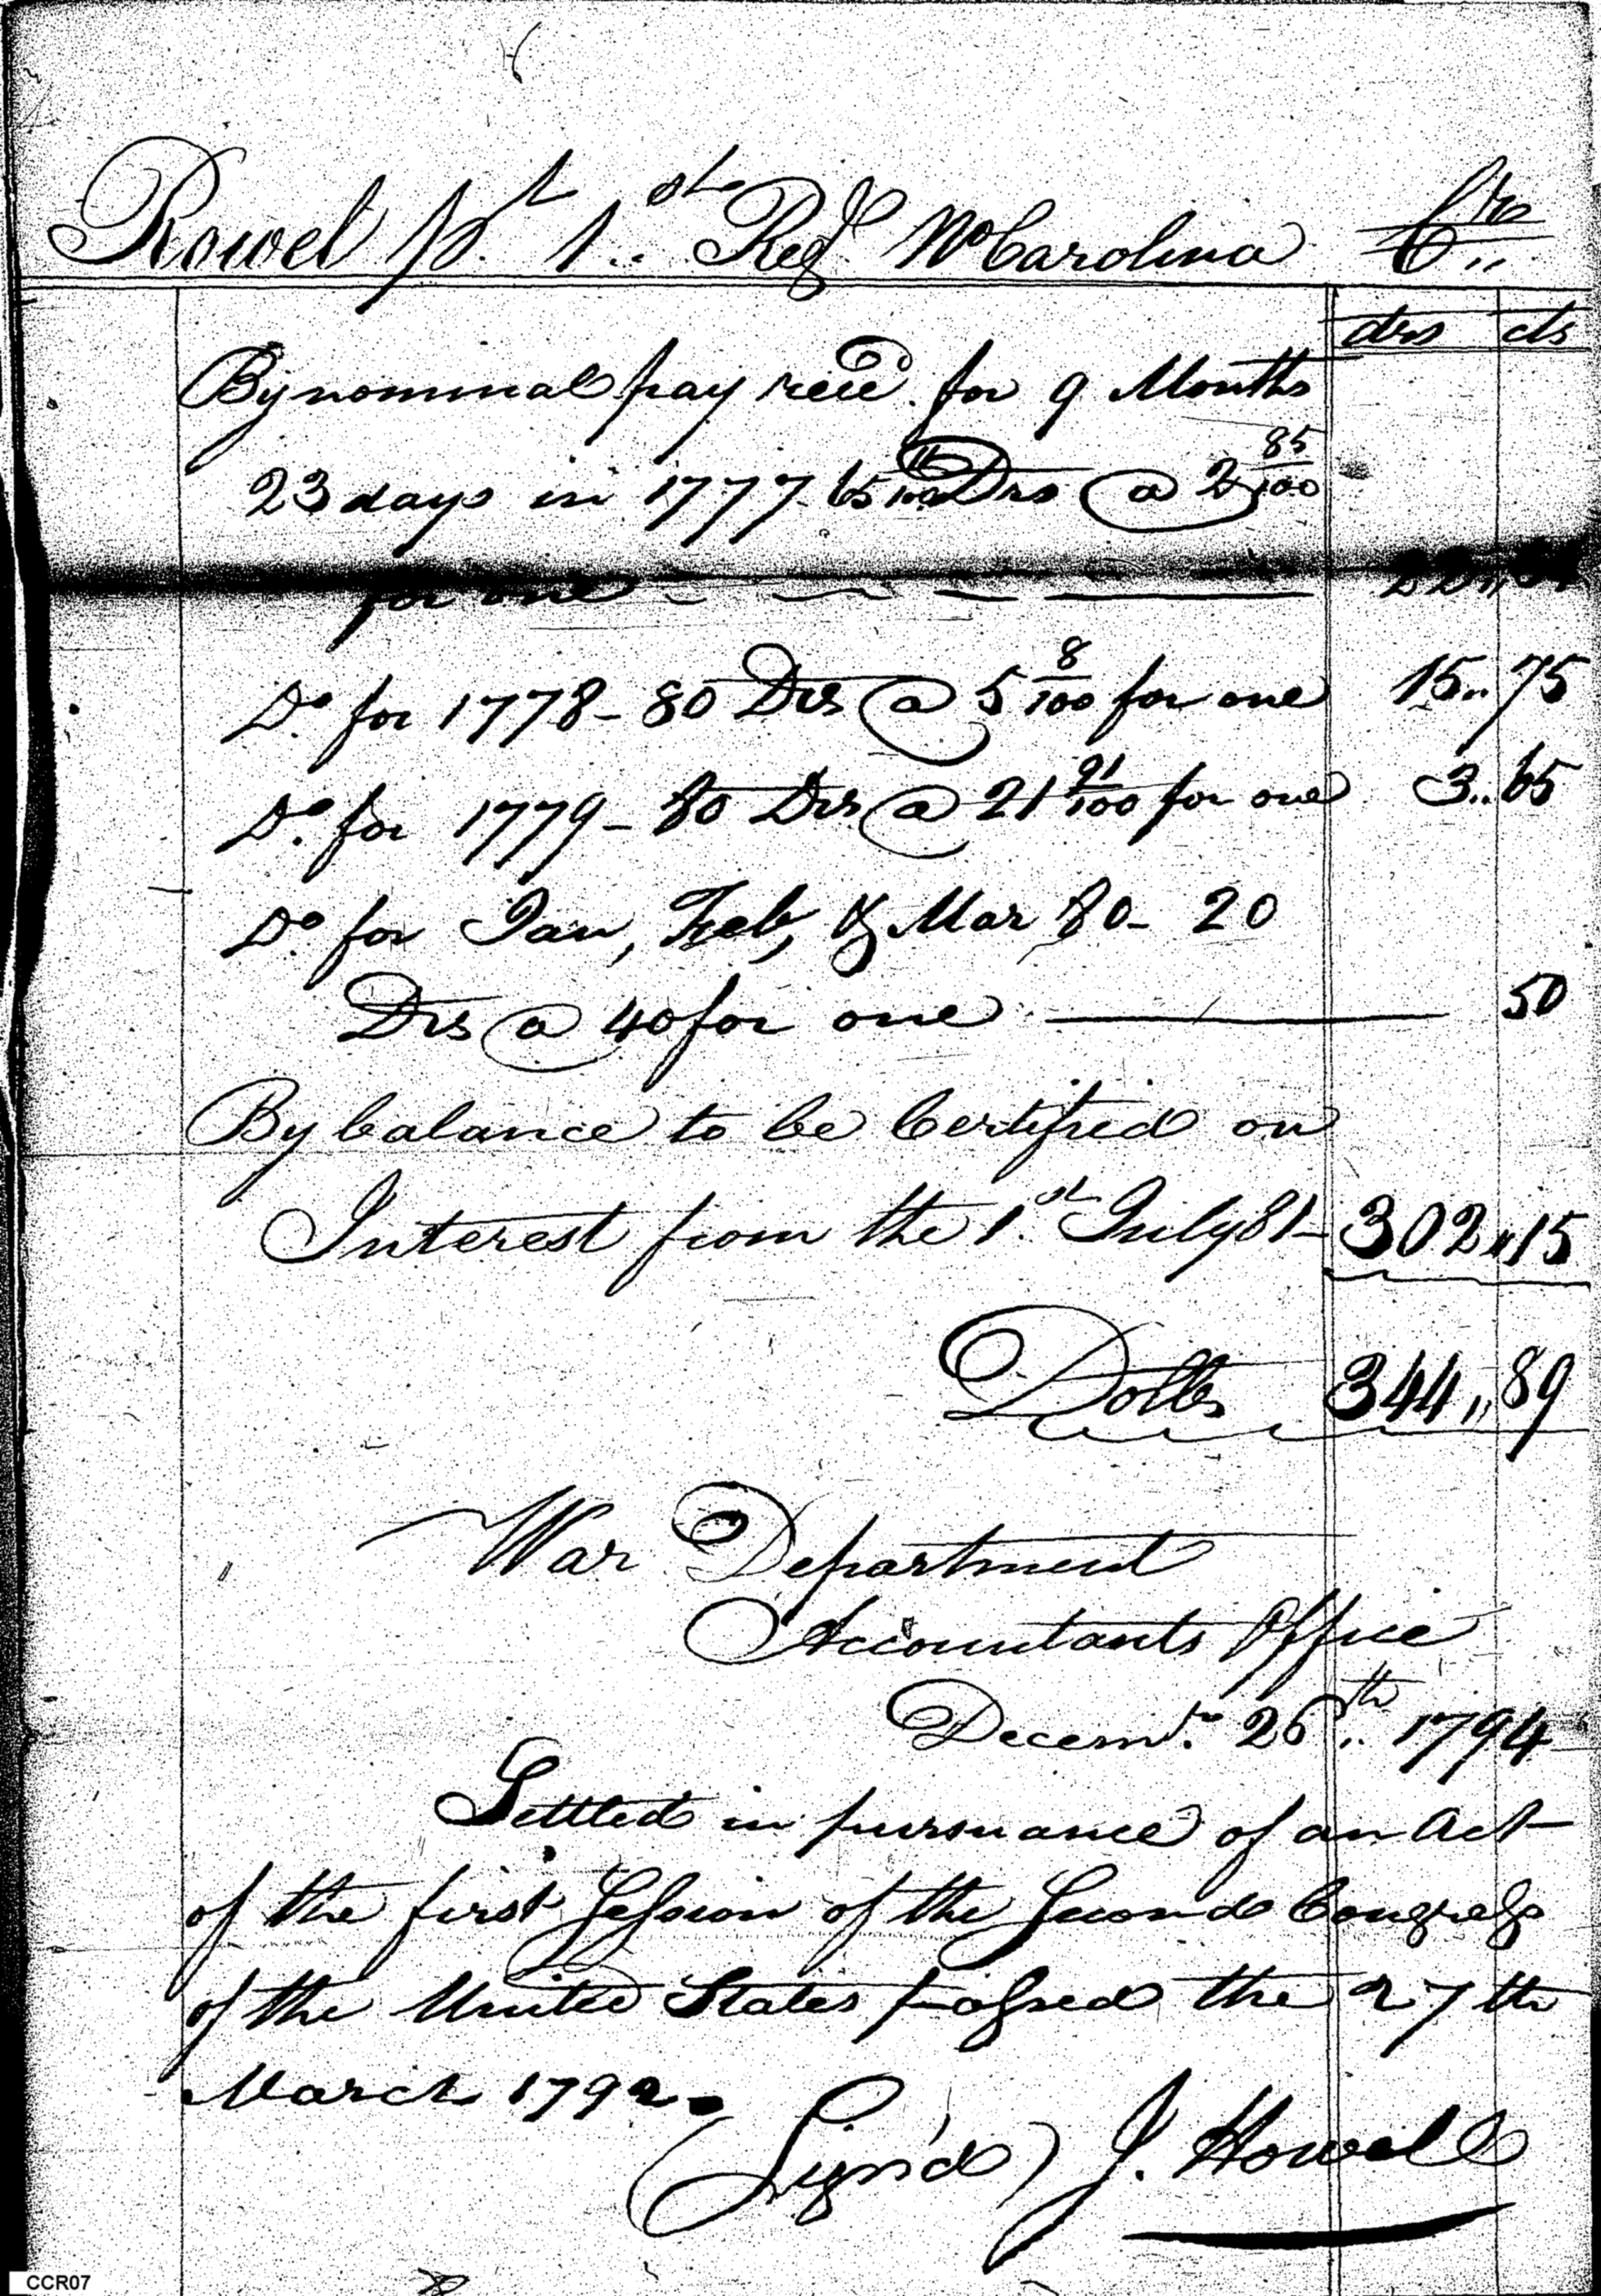 Rowel pt. 1st.. Regt. No Carolina Crs..
drs cts
By nominal pay recd. for 9 Months
23 days in 1777 65 11/100 Drs @ 2 85/100
for one 22,,84
Do. for 1778 - 80 Drs @ 5 8/100 for one 15..75
Do. for 1779 - 80 Drs @ 21 91/100 for one 3..65
Do. for Jan, Feb, & Mar 80 - 20
Drs @ 40 for one 50
By balance to be Certified on
Interest from the 1st. July 81 - 302,,15
Dolls 344,,89
War Department
Accountants Office
Decemr. 26th.. 1794
Settled in pursuance of an Act
of the first Session of the Second Congress
of the United States passed the 27th
March 1792.
(Sign'd) J. Howell
CCR07